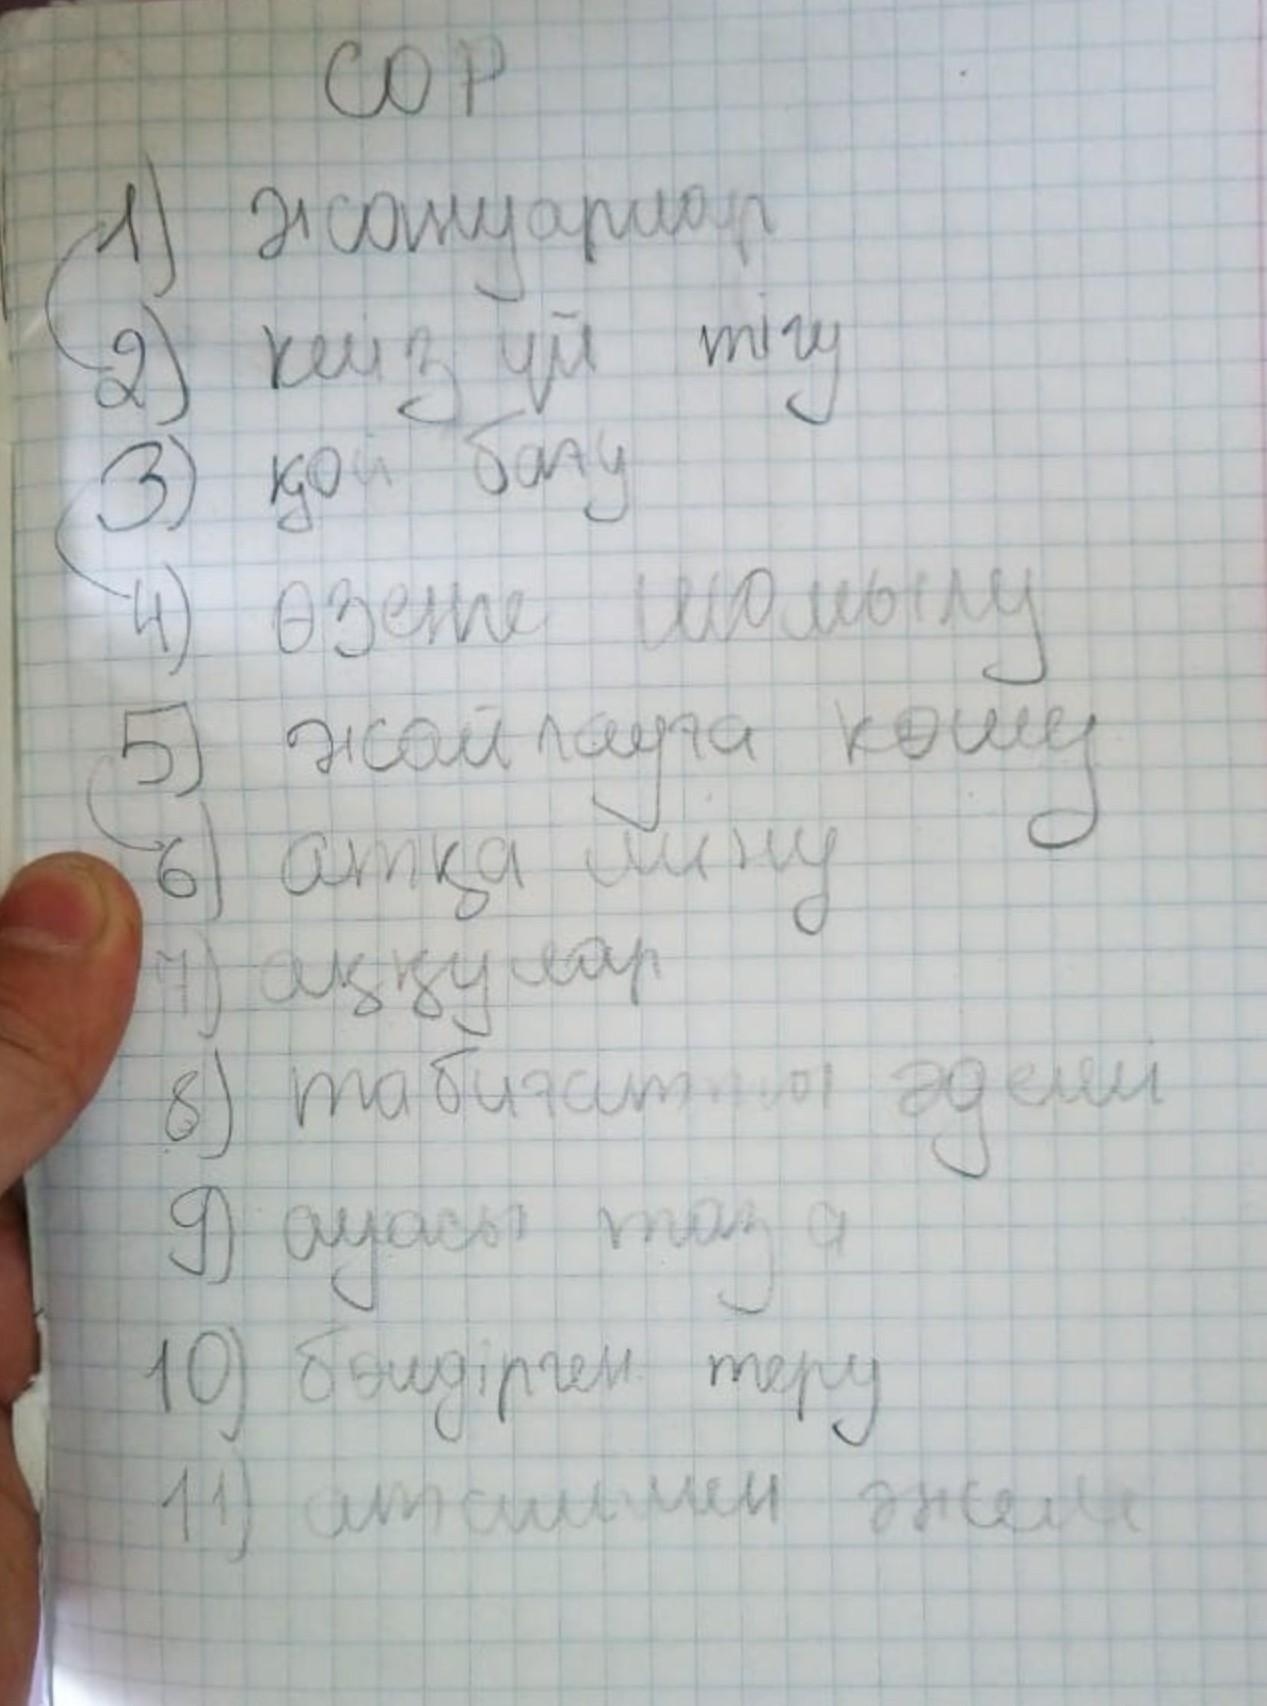 СОР
1) жануарлар
2) кйіз үй тігу
3) қой бағу
4) өзенге шомылу
5) жайлауға көшу
6) атқа міну
7) аққулар
8) табиғаты әдемі
9) ауасы таза
10) бүлдірген теру
11) атаммен әжем